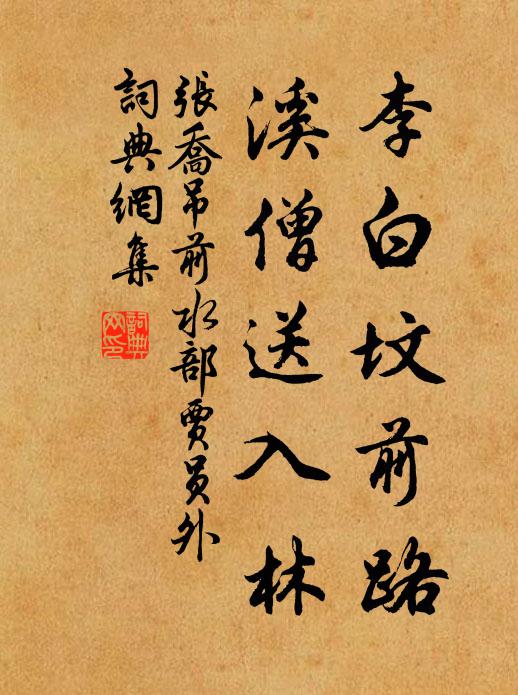 李白坟前路
溪僧送入林
張喬吊前水部賈員外
詞典網集
詞典網印